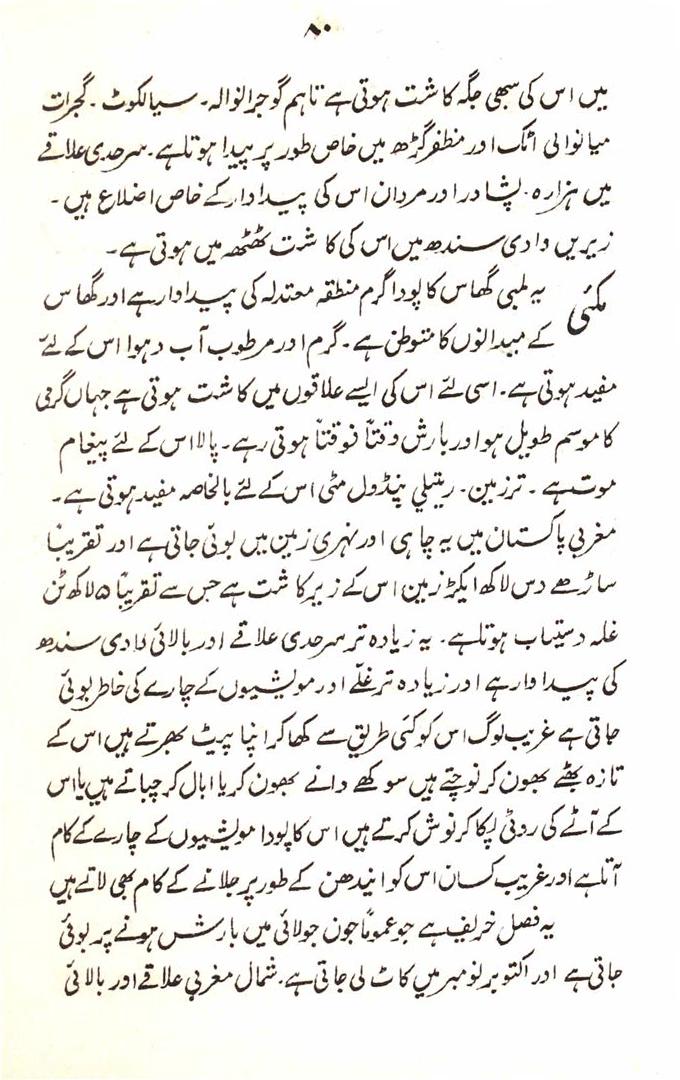 ۸۰
میں اس کی سبھی جگہ کاشت ہوتی ہے تاہم گوجرانوالہ۔ سیالکوٹ۔ گجرات
میانوالی اٹک اور مظفر گڑھ میں خاص طور پر پیدا ہوتا ہے۔ سرحدی علاقے
میں ہزارہ۔ پشاور اور مردان اس کی پیداوار کے خاص اضلاع ہیں۔
زیریں وادی سندھ میں اس کی کاشت ٹھٹھہ میں ہوتی ہے۔
مکئی یہ لمبی گھاس کا پودا گرم منطقہ معتدلہ کی پیداوار ہے اور گھاس
کے میدانوں کا متوطن ہے۔ گرم اور مرطوب آب و ہوا اس کے لئے
مفید ہوتی ہے۔ اسی لئے اس کی ایسے علاقوں میں کاشت ہوتی ہے جہاں گرمی
کا موسم طویل ہو اور بارش وقتاً فوقتاً ہوتی رہے۔ پالا اس کے لئے پیغام
موت ہے۔ تر زمین۔ ریتلی پنڈول مٹی اس کے لئے بالخاصہ مفید ہوتی ہے۔
مغربی پاکستان میں یہ چاہی اور نہری زمین میں بوئی جاتی ہے اور تقریباً
ساڑھے دس لاکھ ایکڑ زمین اس کے زیر کاشت ہے جس سے تقریباً ۵ لاکھ ٹن
غلہ دستیاب ہوتا ہے۔ یہ زیادہ تر سرحدی علاقے اور بالائی وادی سندھ
کی پیداوار ہے اور زیادہ تر غلّے اور مویشیوں کے چارے کی خاطر بوئی
جاتی ہے غریب لوگ اس کو کئی طریق سے کھا کر اپنا پیٹ بھرتے ہیں اس کے
تازہ بھٹے بھون کر نوچتے ہیں سوکھے دانے بھون کر یا ابال کر چباتے ہیں یا اس
کے آٹے کی روٹی پکا کر نوش کرتے ہیں اس کا پودا مویشیوں کے چارے کے کام
آتا ہے اور غریب کسان اس کو ایندھن کے طور پر جلانے کے کام بھی لاتے ہیں
یہ فصل خریف ہے جو عموماً جون جولائی میں بارش ہونے پر بوئی
جاتی ہے اور اکتوبر نومبر میں کاٹ لی جاتی ہے۔ شمال مغربی علاقے اور بالائی